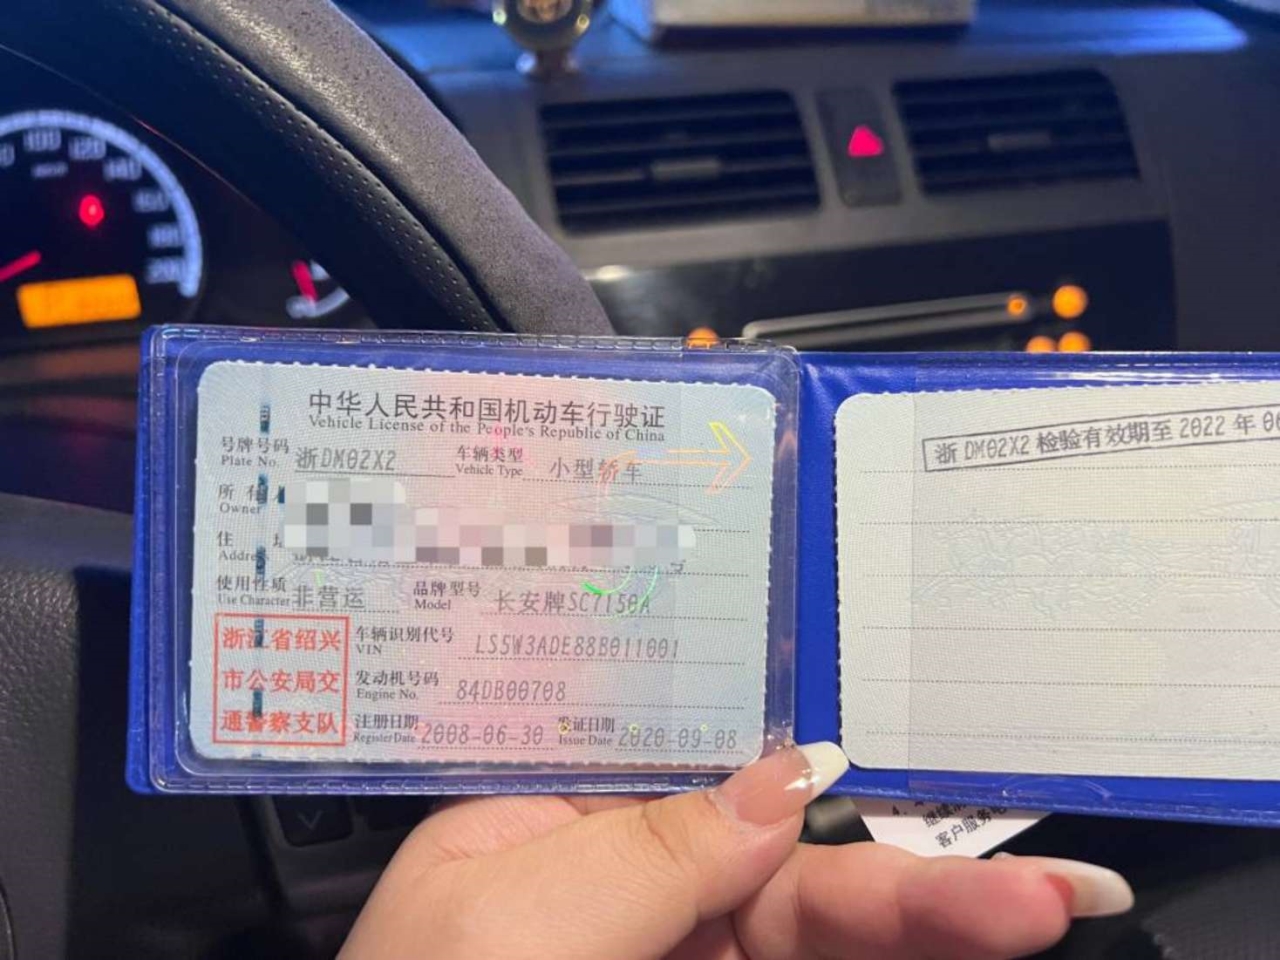 中华人民共和国机动车行驶证
Vehicle License of the People's Republic of China
号牌号码 浙DM02X2 车辆类型 小型轿车
Plate No. Vehicle Type
所有人
Owner
住
Address
使用性质 非营运 品牌型号 长安牌SC7150A
Use Character Model
浙江省绍兴
市公安局交
通警察支队
车辆识别代号 LS5W3ADE88B011001
VIN
发动机号码 84DB00708
Engine No.
注册日期 2008-06-30 发证日期 2020-09-08
Register Date Issue Date
浙DM02X2 检验有效期至 2022 年
客户服务
100
120
140